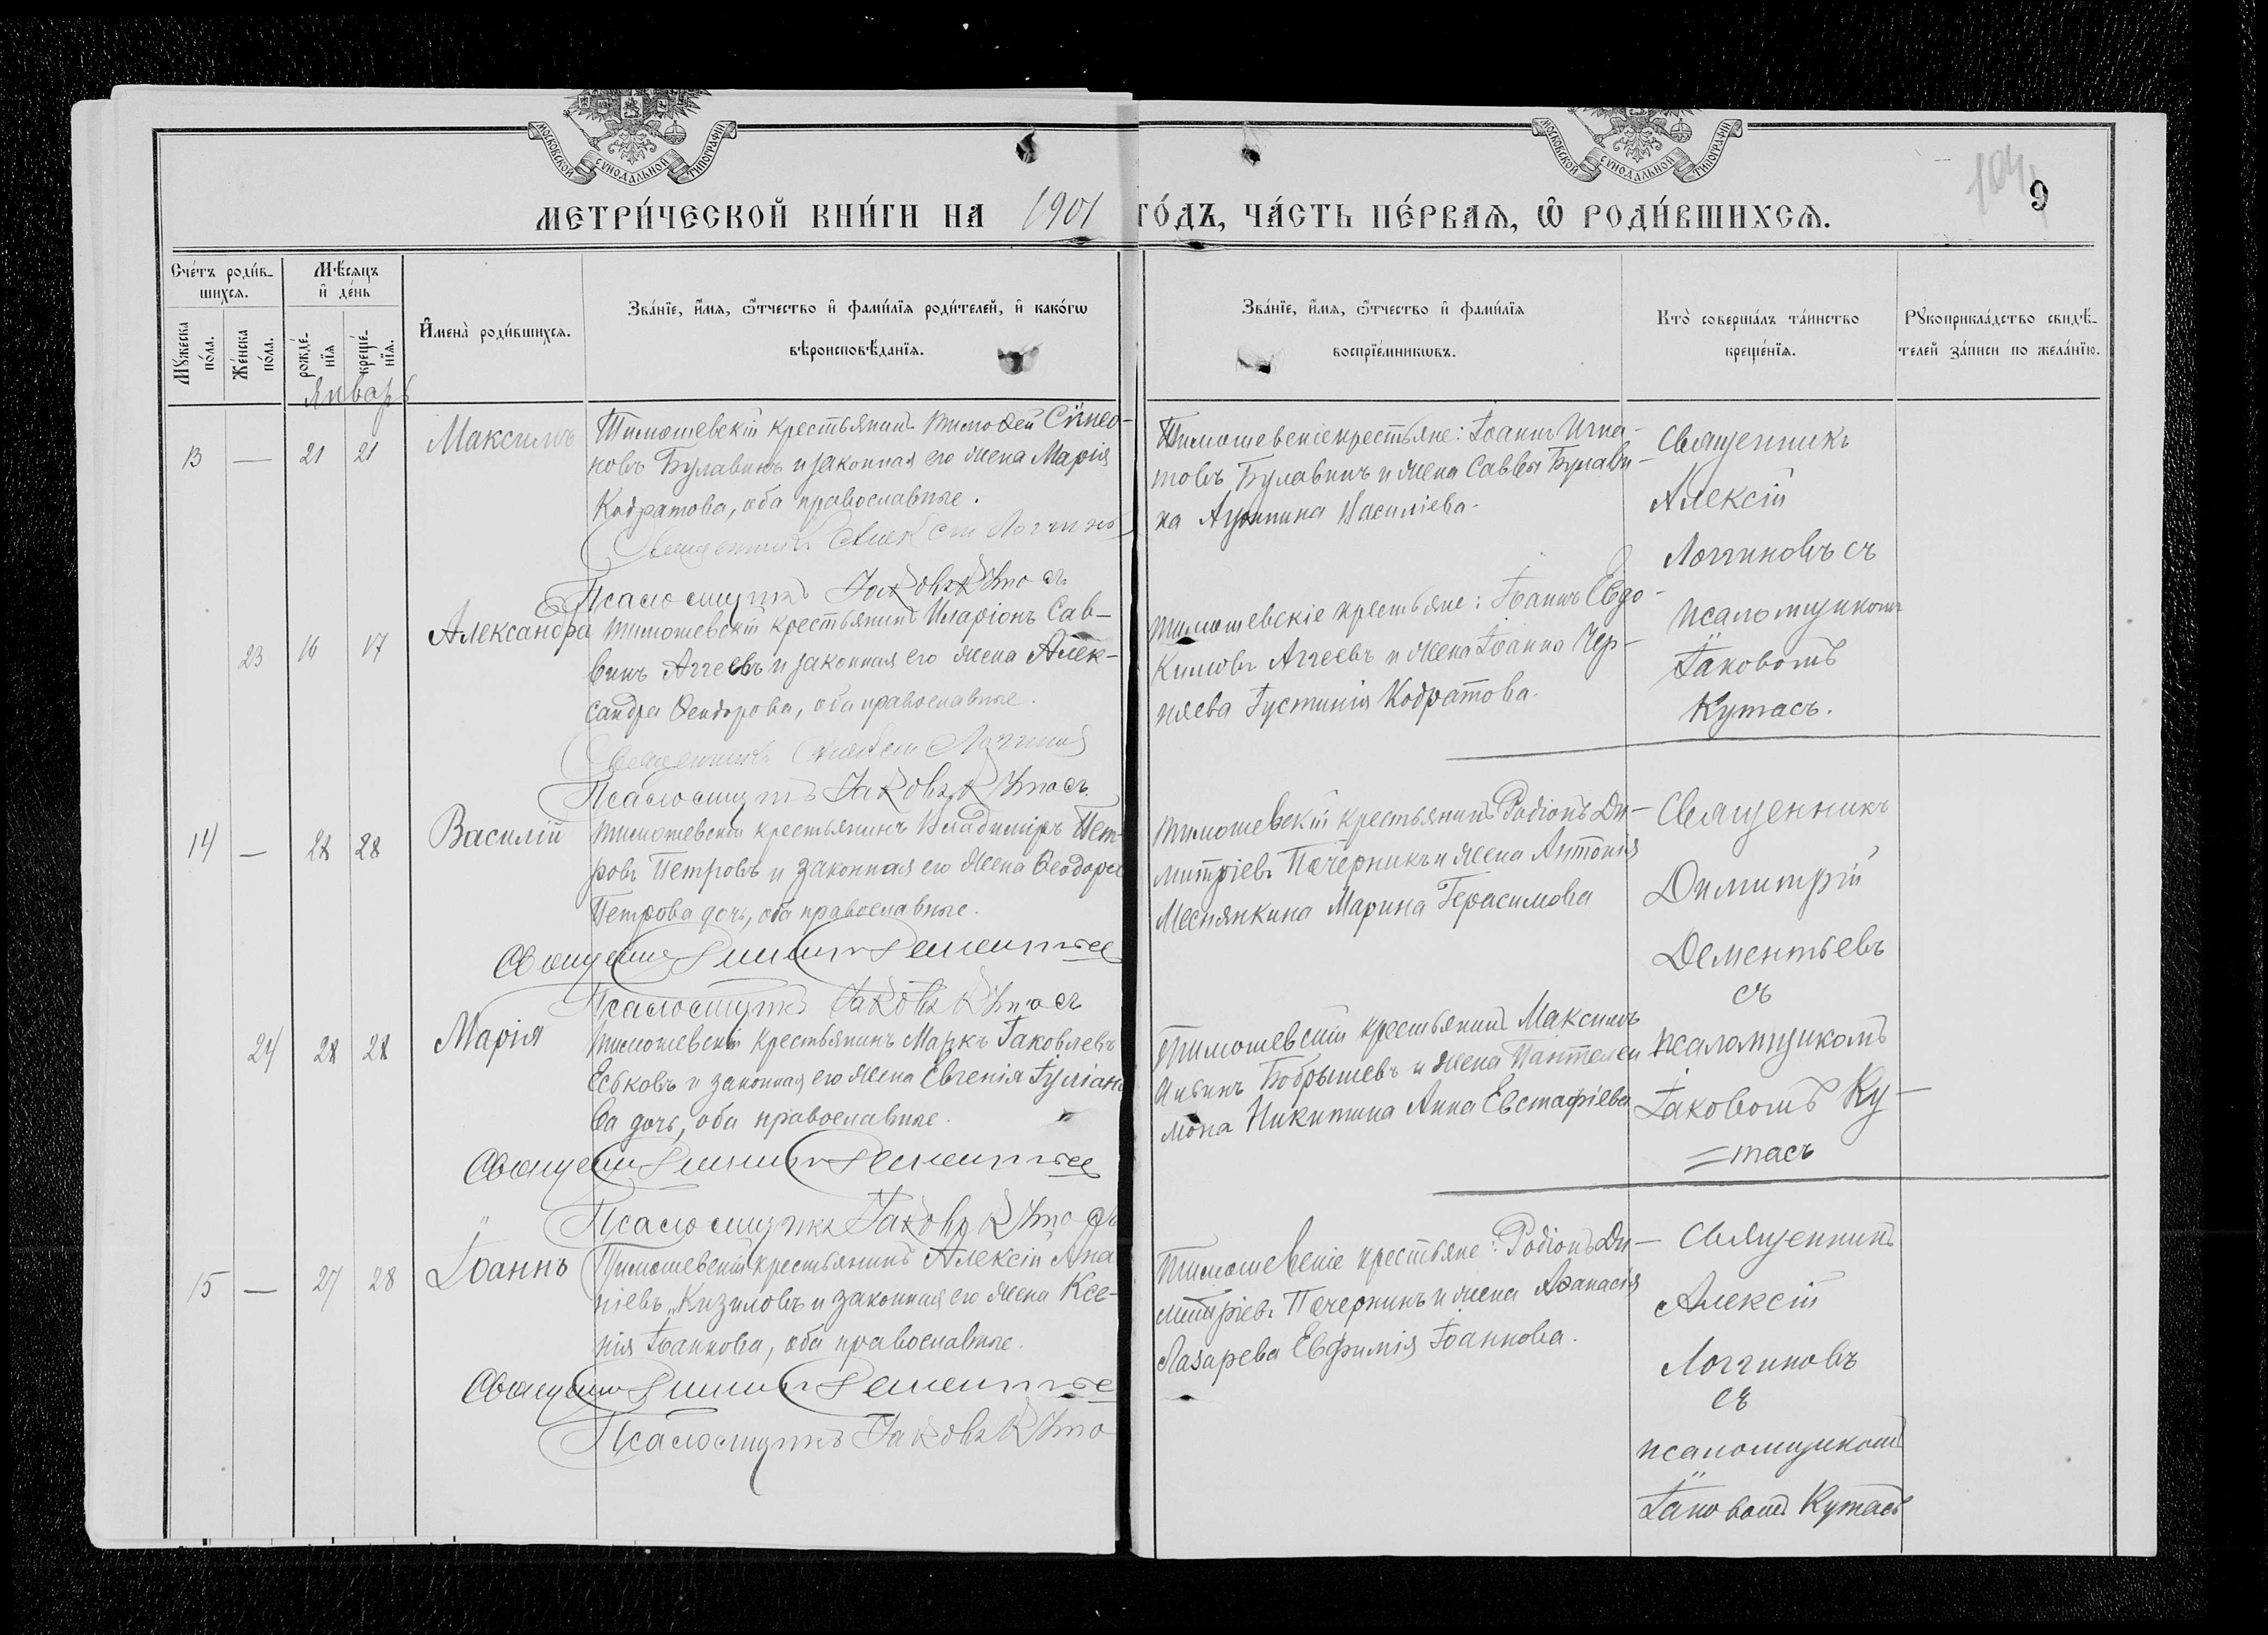 МОСКОВСКОЙ СУНОДАЛЬНОЙ ТИПОГРАФІИ
МОСКОВСКОЙ СУНОДАЛЬНОЙ ТИПОГРАФІИ
104
9
МЕТРИ́ЧЕСКОЙ КНИ́ГИ НА 1901 ГО́ДЪ, ЧА́СТЬ ПЕ́РВАѦ, Ѡ҆ РОДИ́ВШИХСѦ.
Сче́тъ роди́в-
шихсѧ.
Мѣ́сѧцъ
и҆ де́нь
Мꙋ́жеска
по́ла.
Же́нска
по́ла.
рожде́-
нїѧ
креще́-
нїѧ.
И҆мена̀ роди́вшихсѧ.
Зва́нїе, и҆́мѧ, ѻ҆́тчество и҆ фами́лїѧ роди́телей, и҆ како́гѡ
вѣроисповѣ́данїѧ.
Зва́нїе, и҆́мѧ, ѻ҆́тчество и҆ фами́лїѧ
воспрїе́мникѡвъ.
Кто̀ соверша́лъ та́инство
креще́нїѧ.
Рꙋкоприкла́дство свидѣ́-
телей за́писи по жела́нїю.
Январь
13 — 21 21
Максимъ
Тимошевскій крестьянинъ Тимоѳей Сѵмео-
новъ Булавинъ и законная его жена Марія
Кодратова, оба православные.
Священникъ Алексій Логгиновъ
Псаломщикъ Іаковъ Кутасъ
Тимошевскіе крестьяне: Іоаннъ Игна-
товъ Булавинъ и жена Саввы Булави-
на Василіева.
Священникъ
Алексій
Логгиновъ съ
псаломщикомъ
Іаковомъ
Кутасъ.
23 16 17
Александра
Тимошевскій крестьянинъ Иларіонъ Сав-
винъ Аггеевъ и законная его жена Алек-
сандра Ѳеодорова, оба православные.
Священникъ Алексій Логгинов
Псаломщикъ Іаковъ Кутасъ
Тимошевскіе крестьяне: Іоаннъ Евдо-
кимовъ Аггеевъ и жена Іоанна Чер-
няева Іустинія Кодратова.
14 — 28 28
Василій
Тимошевскій крестьянинъ Владиміръ Пет-
ровъ Петровъ и законная его жена Ѳеодора
Петрова дочь, оба православные.
Псаломщикъ Іаковъ Кутасъ
Тимошевскій крестьянинъ Родіонъ Ди-
митріевъ Печерникъ и жена Антонія
Меснянкина Марина Герасимова
Священникъ
Димитрій
Дементьевъ
съ
псаломщикомъ
Іаковомъ Ку-
=тасъ
24 28 28
Марія
Тимошевскій крестьянинъ Маркъ Іаковлевъ
Есбковъ и законная его жена Евгенія Іуліано
ва дочь, оба православные.
Псаломщикъ Іаковъ Кутасъ
Тимошевскій крестьянинъ Максимъ
Бобрышевъ и жена Пантелеи
мона Никитина Анна Евстафіева
15 — 27 28
Іоаннъ
Тимошевскій крестьянинъ Алексій Ана
ніевъ Кизиловъ и законная его жена Ксе-
нія Іоаннова, оба православные.
Псаломщикъ Іаковъ Кута
Тимошевскіе крестьяне: Родіонъ Ди-
митріевъ Печерникъ и жена Аѳанасія
Лазарева Евфимія Іоаннова.
Священникъ
Алексій
Логгиновъ
съ
псаломщикомъ
Іаковомъ Кутасъ